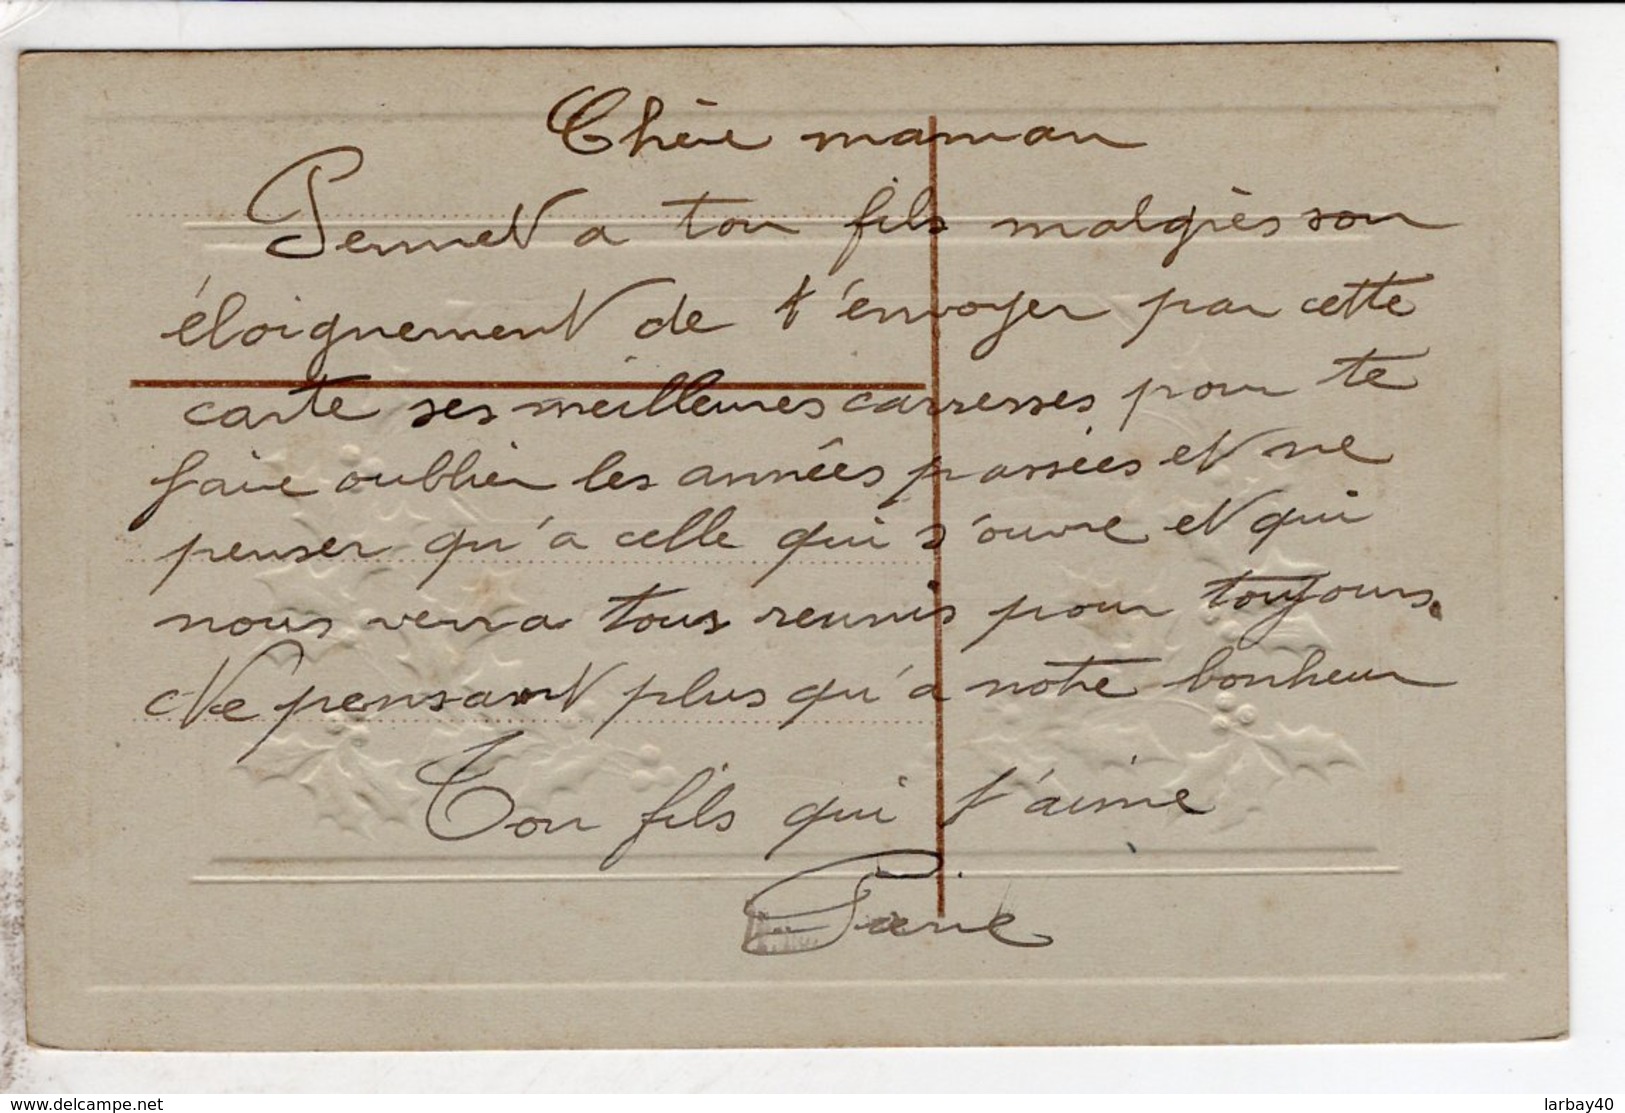 Chère maman
Permet a ton fils malgrès son
éloignement de t'envoyer par cette
carte ses meilleures carresses pour te
faire oublier les années passées et ne
penser qu'a celle qui s'ouvre et qui
nous verra tous reunis pour toujours.
Ne pensant plus qu'a notre bonheur
Ton fils qui t'aime
www.delcampe.net
larbay40